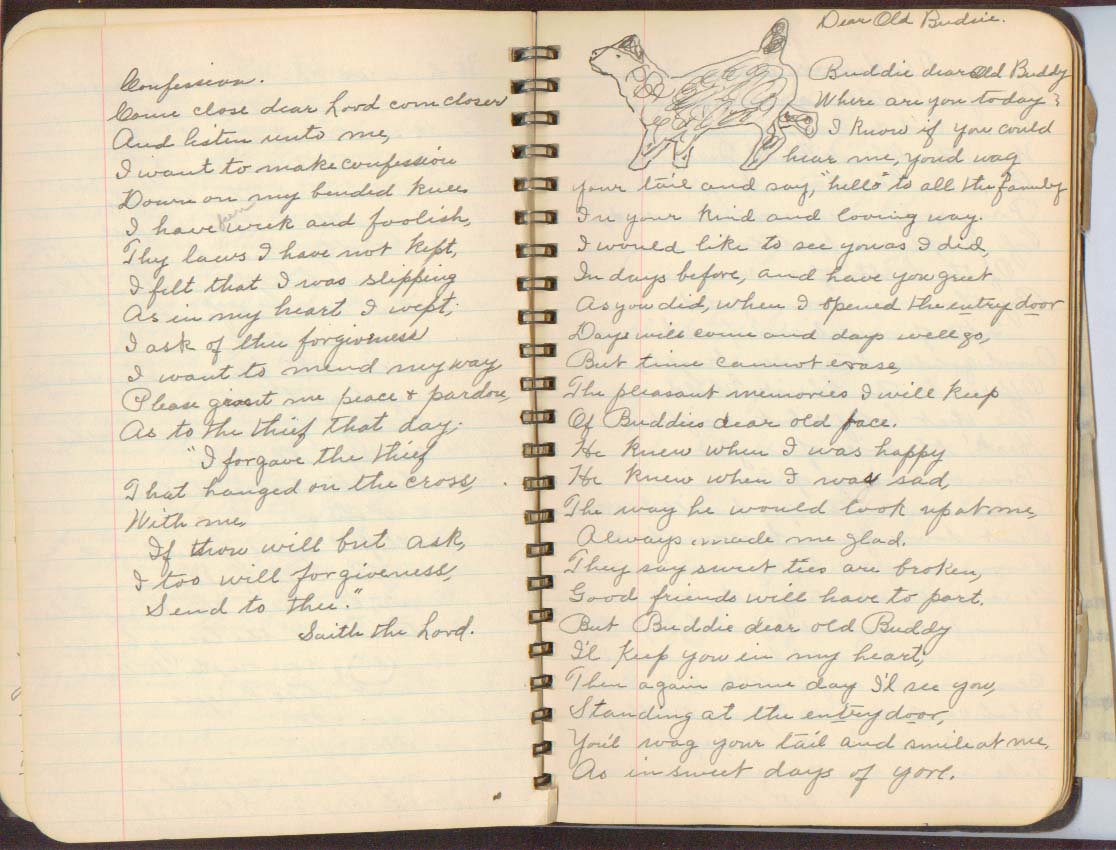 Confession.
Come close dear Lord com closer
And listen unto me,
I want to make confession
Down on my bended knees
I have been weck and foolish,
Thy laws I have not kept,
I felt that I was slipping
As in my heart I wept;
I ask of thee forgiveness
I want to mend my way
Please grant me peace & pardon,
As to the thief that day.
"I forgave the thief
That hanged on the cross,
With me,
If thou will but ask,
I too will forgiveness,
Send to thee."
Saith the Lord.
Dear Old Budie.
Buddie dear Old Buddy
Where are you today?
I know if you could
hear me, you'd wag
your tail and say, "hello" to all the family
In your kind and loving way.
I would like to see you as I did,
In days before, and have you greet
As you did, when I opened the entry door
Days will come and days well go,
But time cannot erase,
The pleasant memories I will keep
Of Buddies dear old face.
He knew when I was happy
He knew when I was sad,
The way he would look up at me,
Always made me glad.
They say sweet ties are broken,
Good friends will have to part.
But Buddie dear old Buddy
I'l keep you in my heart,
Then again some day I'l see you,
Standing at the entry door,
You'l wag your tail and smile at me,
As in sweet days of yore.